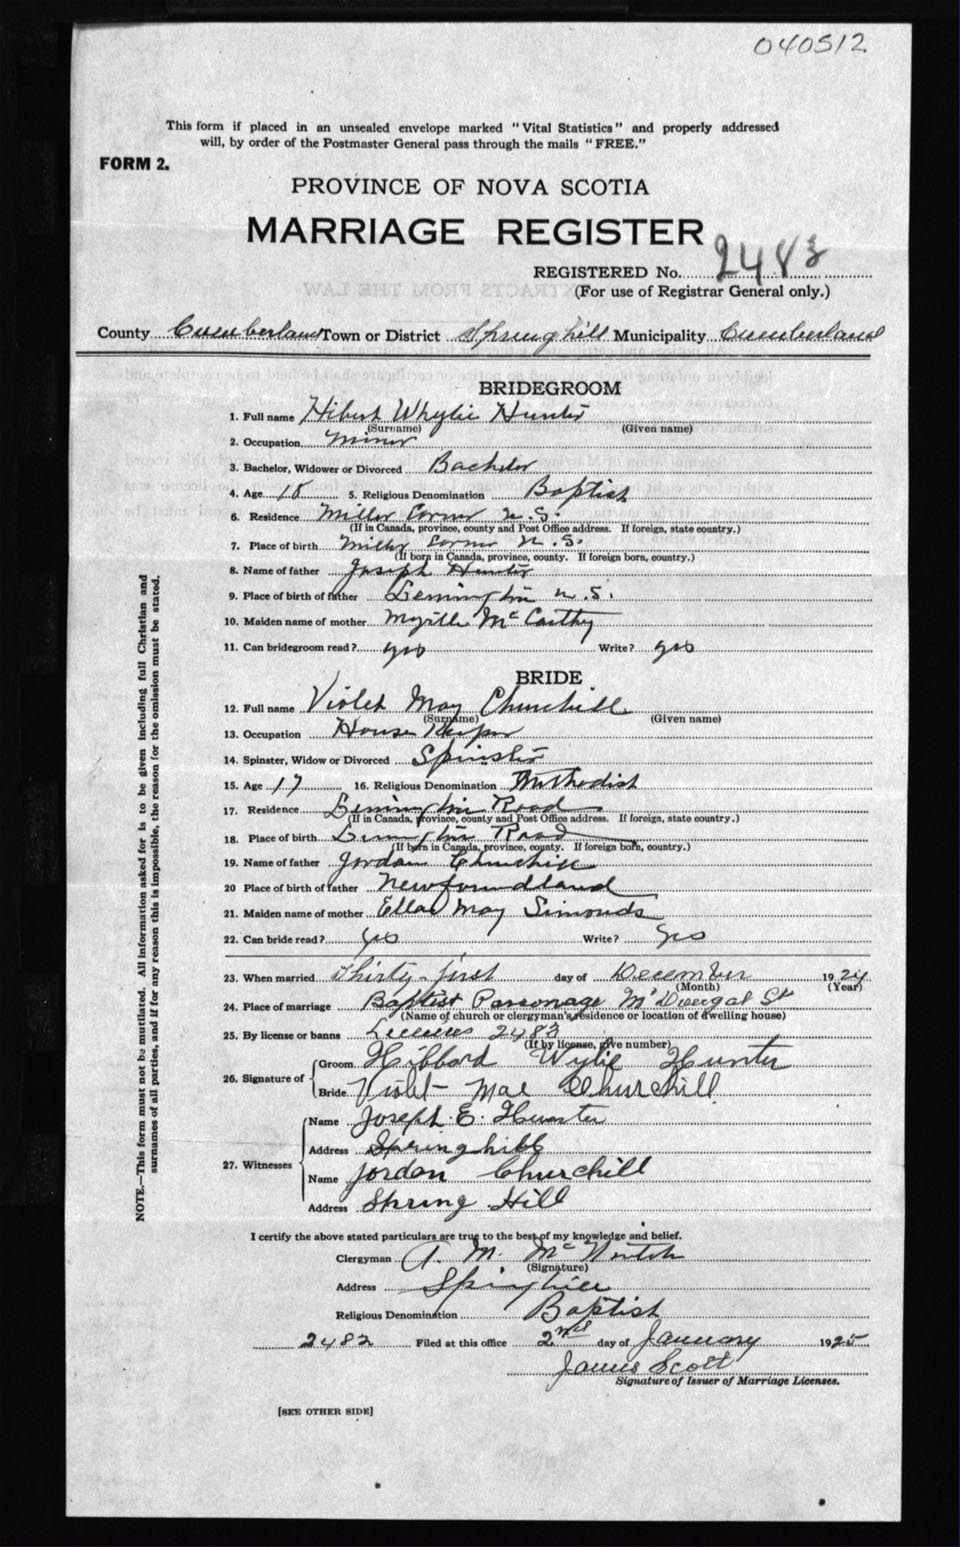 040512
This form if placed in an unsealed envelope marked "Vital Statistics" and properly addressed
will, by order of the Postmaster General pass through the mails "FREE."
FORM 2.
PROVINCE OF NOVA SCOTIA
MARRIAGE REGISTER
REGISTERED No. 2483
(For use of Registrar General only.)
County Cumberland Town or District Springhill Municipality Cumberland
BRIDEGROOM
1. Full name Hibert Whylie Hunter
(Surname) (Given name)
2. Occupation Miner
3. Bachelor, Widower or Divorced Bachelor
4. Age 18 5. Religious Denomination Baptist
6. Residence Miller Corner N.S.
(If in Canada, province, county and Post Office address. If foreign, state country.)
7. Place of birth Miller Corner N.S.
(If born in Canada, province, county. If foreign born, country.)
8. Name of father Joseph Hunter
9. Place of birth of father Lemington N.S.
10. Maiden name of mother Myrtle McCarthy
11. Can bridegroom read? yes Write? yes
BRIDE
12. Full name Violet May Churchill
(Surname) (Given name)
13. Occupation House Keeper
14. Spinster, Widow or Divorced Spinster
15. Age 17 16. Religious Denomination Methodist
17. Residence Lemington Road
(If in Canada, province, county and Post Office address. If foreign, state country.)
18. Place of birth Lemington Road
(If born in Canada, province, county. If foreign born, country.)
19. Name of father Jordan Churchill
20 Place of birth of father Newfoundland
21. Maiden name of mother Ella May Simonds
22. Can bride read? yes Write? yes
23. When married Thirty-first day of December 1924
(Month) (Year)
24. Place of marriage Baptist Parsonage McDougal St
(Name of church or clergyman's residence or location of dwelling house)
25. By license or banns License 2483
(If by license, give number)
26. Signature of Groom Hibbard Wylie Hunter
Bride Violet Mae Churchill
27. Witnesses Name Joseph E. Hunter
Address Springhill
Name Jordan Churchill
Address Spring Hill
I certify the above stated particulars are true to the best of my knowledge and belief.
Clergyman A. M. McNintch
(Signature)
Address Springhill
Religious Denomination Baptist
2483 Filed at this office 2nd day of January 1925
James Scott
Signature of Issuer of Marriage Licenses.
[SEE OTHER SIDE]
NOTE.—This form must not be mutilated. All information asked for is to be given including full Christian and
surnames of all parties, and if for any reason this is impossible, the reason for the omission must be stated.